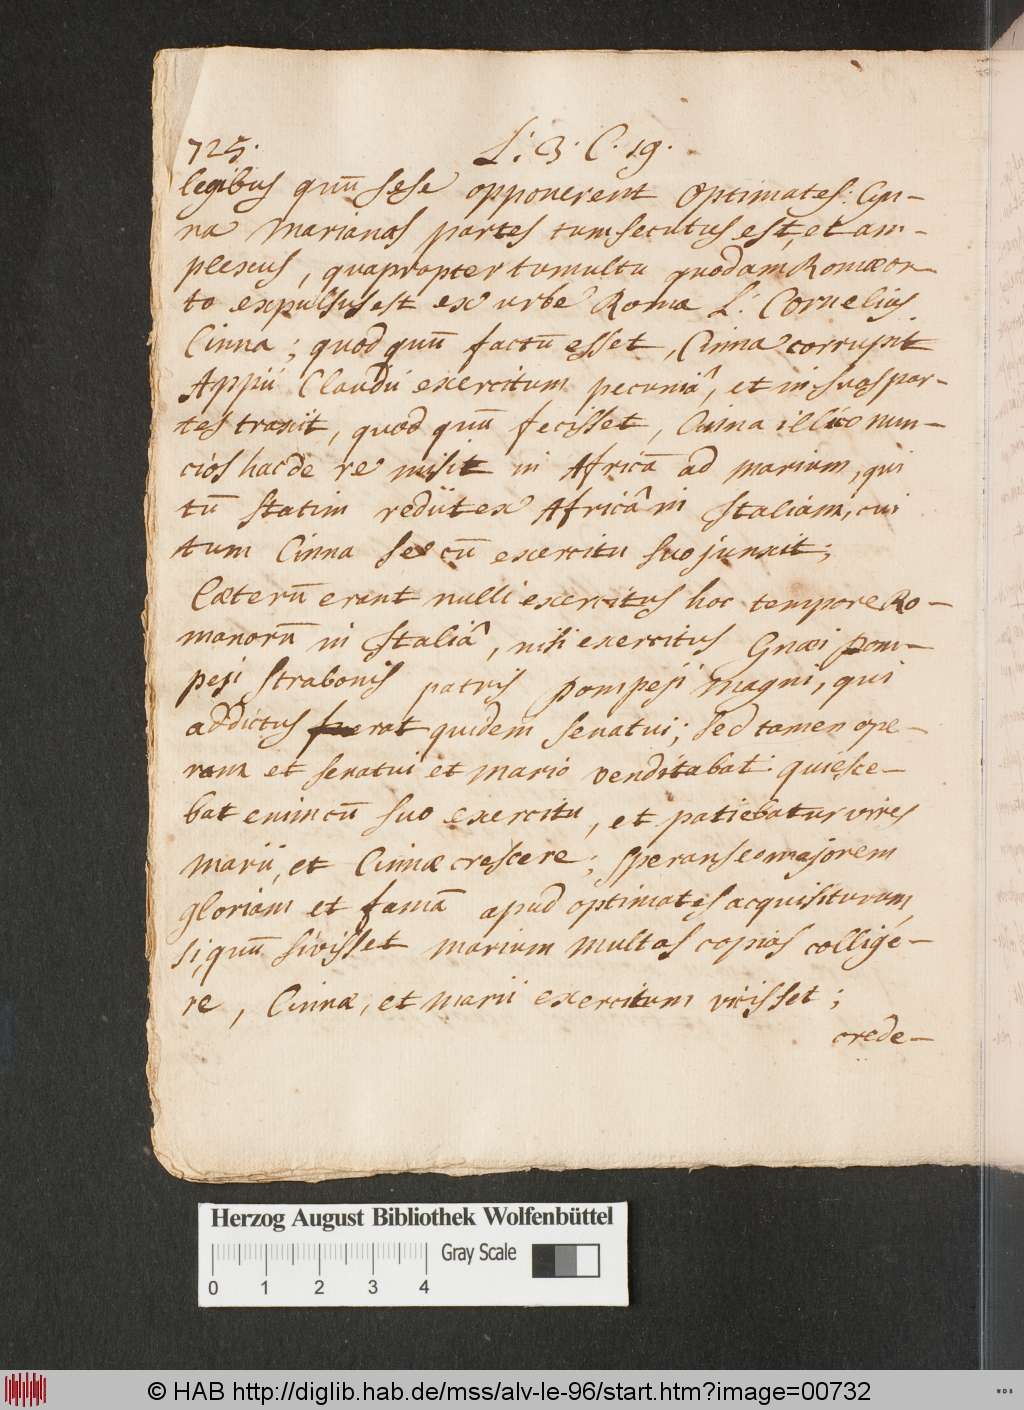 725. L: 3. C. 19.
legibus quū sese opponerent Optimates: Cyn-
na Marianas partes tum secutus est, et am-
plexus, quapropter tumultu quodam Romæ or-
to expulsus est ex urbe Roma L: Cornelius
Cinna; quod quū factū esset, Cinna corrupit
Appii Claudii exercitum pecuniâ, et in suas par-
tes traxit, quod quū fecisset, Cinna illico nun-
cios hac de re misit in Africā ad Marium, qui
tū statim rediit ex Africâ in Italiam, cui
tum Cinna se cū exercitu suo junxit;
Cæterū erant nulli exercitus hoc tempore Ro-
manorū in Italiâ, nisi exercitus Gnæi Pom-
peji Strabonis patris Pompeji Magni, qui
addictus erat quidem senatui; sed tamen ope-
ram et senatui et Mario venditabat: quiesce-
bat enim cū suo exercitu, et patiebatur vires
Marii, et Cinnæ crescere; sperans eo majorem
gloriam et famā apud optimates acquisituram,
si, quū sivisset Marium multas copias collige-
re, Cinnæ, et Marii exercitum vicisset;
crede-
Herzog August Bibliothek Wolfenbüttel
Gray Scale
0 1 2 3 4
© HAB http://diglib.hab.de/mss/alv-le-96/start.htm?image=00732